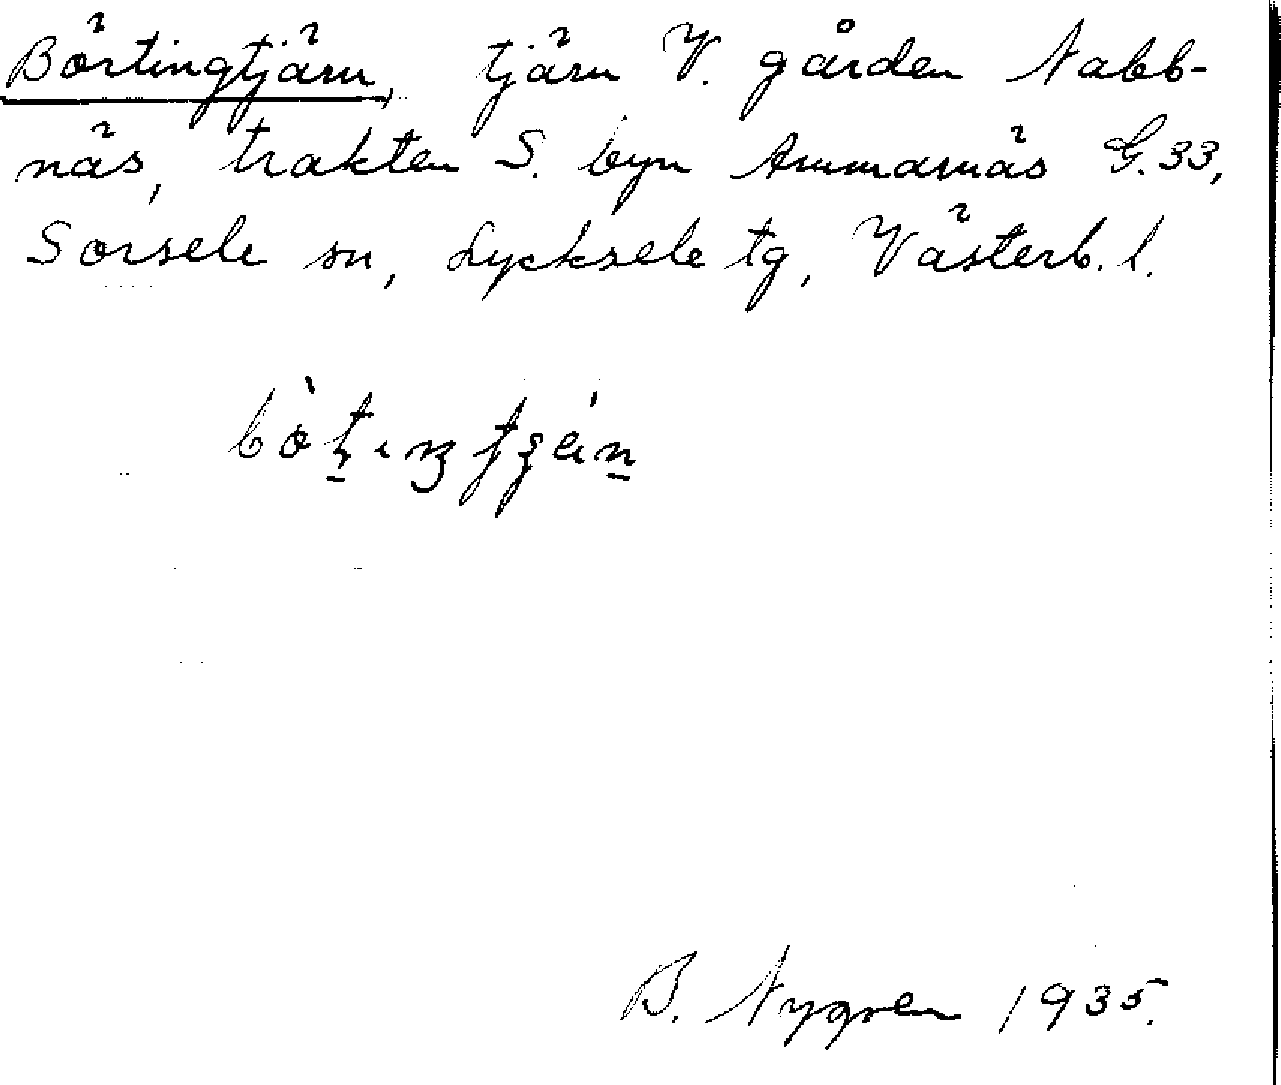 Börtingtjärn, tjärn V. gården Nabb-
näs, trakten S. byn Ammarnäs G. 33,
Sorsele sn, Lycksele tg, Västerb. l.
B. Nygren 1935.